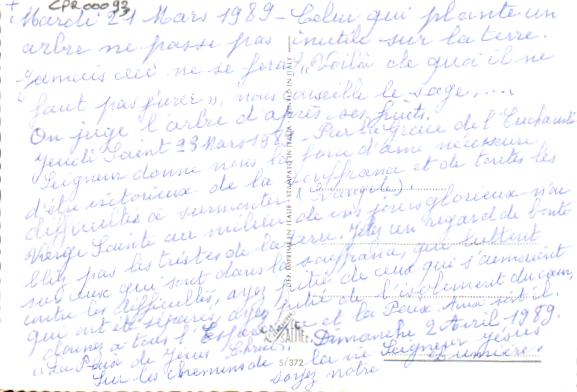 + CPR00093
Mardi 21 Mars 1989 - Celui qui plante un
arbre ne passe pas inutile sur la terre.
Jamais ceci ne se fera! "Voilà de quoi il ne
faut pas jurer", nous conseille le sage, ....
On juge l'arbre d'après ses fruits.
Jeudi Saint 23 Mars 1989 - Par la grâce de l'Eucharistie
Seigneur donne nous la force d'âme nécessaire
d'être victorieux de la souffrance et de toutes les
difficultés à surmonter (Evangile).
Vierge Sainte au milieu de vos jours glorieux n'ou
blie pas les tristes de la terre. Jetez un regard de bonté
sur ceux qui sont dans la souffrance, qui luttent
contre les difficultés, ayez pitié de ceux qui s'aimaient
qui ont été séparés, ayez pitié de l'isolement du cœur,
donnez à tous l'Espérance et la Paix. Ainsi soit-il.
"La Paix de Jésus Christ" Dimanche 2 Avril 1989.
Sur les chemins de la vie Seigneur Jésus
soyez notre lumière.
DEP. IMPRIME EN ITALIE - STAMPATO IN ITALIA - PRINTED IN ITALY
5/372